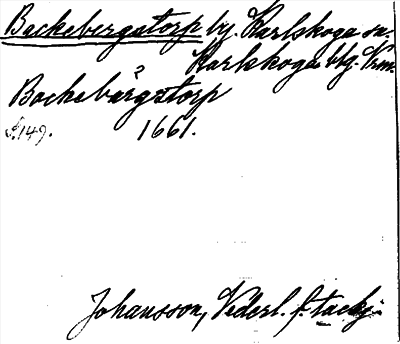 Backebergstorp by. Karlskoga sn.
Karlskoga btg. Vrm.
?
Backebårgstorp
S. 149. 1661.
Johansson, Vederl. f. tackj.